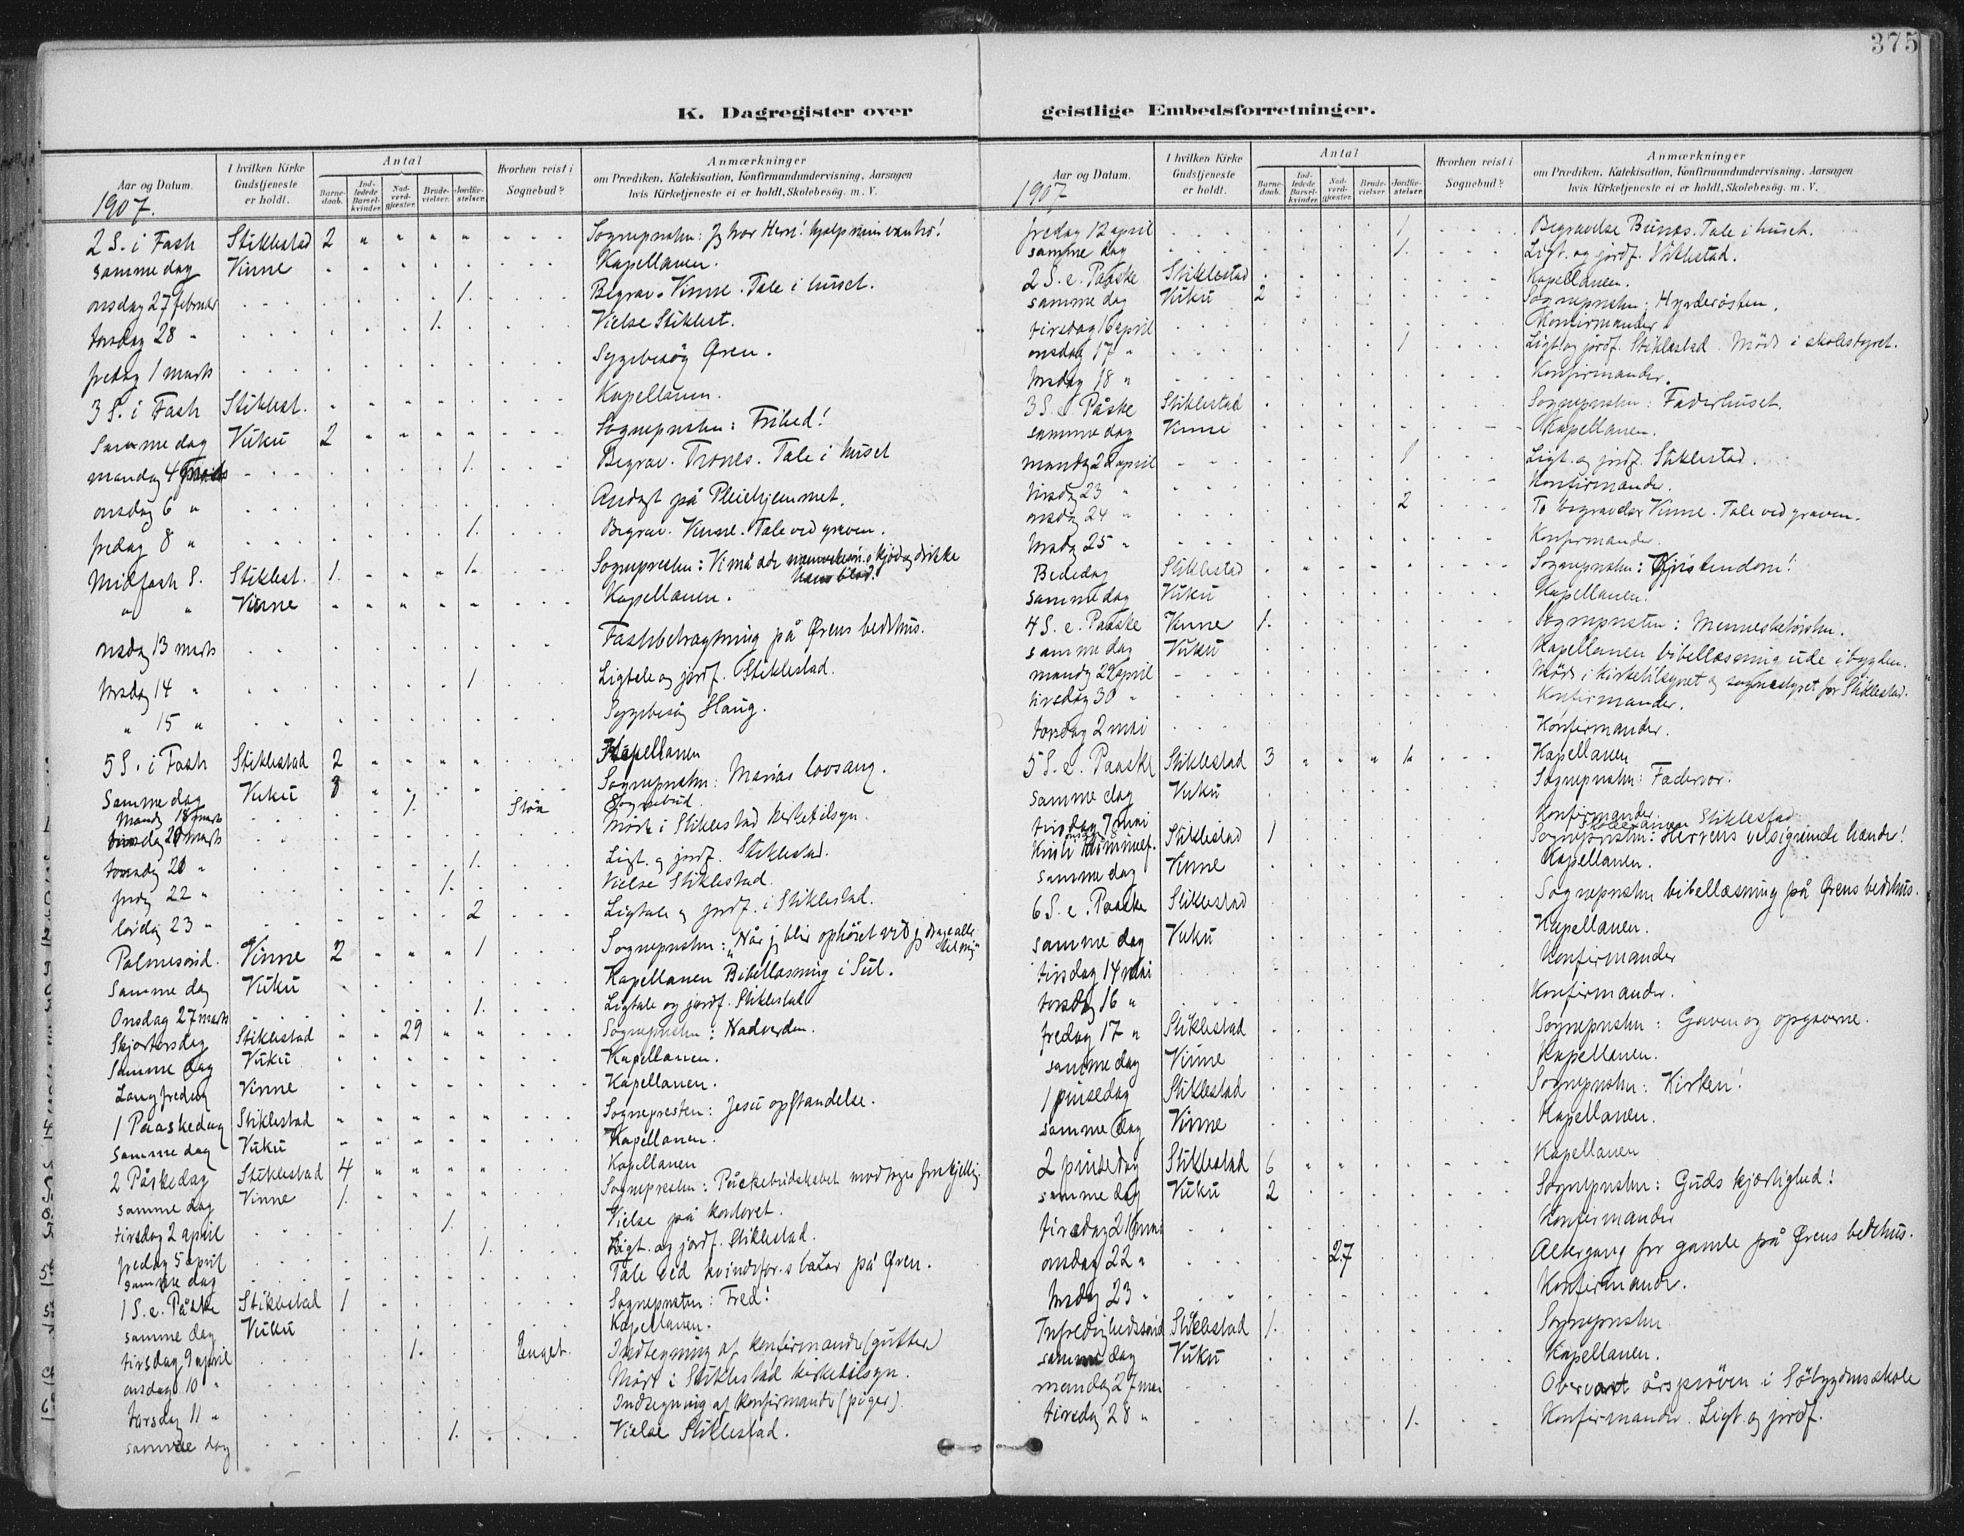 375
K. Dagregister over geistlige Embedsforretninger.
Aar og Datum.
I hvilken Kirke Gudstjeneste er holdt.
Antal
Barnedaab.
Indledede Barselkvinder.
Nadverdgjester.
Brudevielser.
Jordfæstelser.
Hvorhen reist i Sognebud?
Anmærkninger
om Prædiken, Katekisation, Konfirmandundervisning, Aarsagen
hvis Kirketjeneste ei er holdt, Skolebesög. m. V.
1907.
2 S. i Fast Stiklestad 2 Sognepresten: Jeg tror Herre! hjælp min vantro!
samme dag Vinne Kapellanen.
onsdag 27 februar 1. Begrav. Vinne. Tale i huset.
torsdag 28 " 1. Vielse Stiklest.
fredag 1 marts Sygebesøg Øren.
3 S. i Fast Stiklest. Kapellanen.
Samme dag Vuku 2 Sognepresten: Frihed!
mandag 4 marts 1. Begrav. Trones. Tale i huset
onsdag 6 " Andagt på Pleiehjemmet.
fredag 8 " 1. Begrav. Vinne. Tale ved graven.
Midfast S. Stiklest. 1. 1. Sognepresten: Vi må æde menneskesøn.s kjød og drikke hans blod!
" " Vinne Kapellanen.
onsdag 13 marts Fastebetragtning på Ørens bedehus.
torsdag 14 " 1 Ligtale og jordf. Stiklestad.
" 15 " Sygebesøg Haug.
5 S. i Fast Stiklestad 2 Kapellanen
Samme dag Vuku 8 Sognepresten: Marias lovsang.
Mandag 18 marts 1. Sognebud.
tirsdag marts Møte i Stiklestad kirketilsyn.
torsdag 1. Ligt. og jordf. Stiklestad.
fredag 22 " 1. Vielse Stiklestad.
lørdag 23 " 2 Ligtale og jordf. i Stiklestad.
Palmesønd. Vinne 2 1 Sognepresten: "Når jeg blir ophøiet vil jeg drage alle til mig"
Samme dag Vuku Kapellanen Bibellæsning i Sul.
Onsdag 27 marts 1. Ligtale og jordf. Stiklestad
Skjærtorsdag Stiklestad 29 Sognepresten: Nadverden.
Samme dag Vuku Kapellanen.
Langfredag Vinne Kapellanen.
1 Paaskedag Stiklestad Sognepresten: Jesu opstandelse.
samme dag Vuku Kapellanen.
2 Påskedag Stiklestad 4 Kapellanen
samme dag Vinne 1. Sognepresten: Påskebudskabet
tirsdag 2 april 1. Vielse på kontoret.
fredag 5 april 1. Ligt. og jordf. Stiklestad.
samme dag Tale ved kvindefor.s bazar på Øren.
1 S. e. Påske Stiklestad 1 Sognepresten: Fred!
samme dag Vuku Kapellanen.
tirsdag 9 april 1. Indtegning af konfirmander (gutter)
onsdag 10 " Møte i Stiklestad kirketilsyn.
torsdag 11 " Indtegning af konfirmander (piger)
samme dag 1. Vielse Stiklestad.
Aar og Datum.
I hvilken Kirke Gudstjeneste er holdt.
Antal
Barnedaab.
Indledede Barselkvinder.
Nadverdgjester.
Brudevielser.
Jordfæstelser.
Hvorhen reist i Sognebud?
Anmærkninger
om Prædiken, Katekisation, Konfirmandundervisning, Aarsagen
hvis Kirketjeneste ei er holdt, Skolebesög. m. V.
1907
fredag 12 april 1. Begravelse Bunes. Tale i huset.
samme dag 1. Ligt. og jordf. Stiklestad.
2 S. e. Paaske Stiklestad Kapellanen.
samme dag Vuku 2 Sognepresten: Hyrderøsten.
tirsdag 16 april Konfirmander
onsdag 17 " 1 Ligt. og jordf. Stiklestad. Møde i skolestyret.
torsdag 18 " Konfirmander.
3 S. e. Påske Stiklestad Sognepresten: Faderhuset.
samme dag Vinne Kapellanen.
mandag 22 april 1 Ligt. og jordf. Stiklestad.
tirsdag 23 " Konfirmander.
onsdag 24 " 2 To begravelser Vinne. Tale ved graven.
torsdag 25 " Konfirmander.
Bededag Stiklestad Sognepresten: Kristendom!
samme dag Vuku Kapellanen.
4 S. e. Paaske Vinne 1. Sognepresten:
samme dag Vuku Kapellanen bibellæsning ude i bygden.
mandag 29 april Møde i kirketilsynet og sognestyret for Stiklestad.
tirsdag 30 " Konfirmander.
torsdag 2 mai Konfirmander.
5 S. e. Paaske Stiklestad 3 1. Kapellanen
samme dag Vuku Sognepresten: Fadervor.
tirsdag 7 mai Konfirmander. Stiklestad
Kristi Himmelf. Stiklestad 1 Sognepresten: Herrens velsignende hænder!
samme dag Vinne Kapellanen.
6 S. e. Paaske Stiklestad Sognepresten bibellæsning på Ørens bedehus.
samme dag Vuku Kapellanen.
tirsdag 14 mai Konfirmander
torsdag 16 " Konfirmander.
fredag 17 " Stiklestad Sognepresten: Gaven og opgaverne.
samme dag Vinne Kapellanen.
1 pinsedag Stiklestad Sognepresten: Kirken!
samme dag Vinne Kapellanen.
2 pinsedag Stiklestad 6 Kapellanen
samme dag Vuku 2 Sognepresten: Guds kjærlighed!
tirsdag 21 mai Konfirmander
onsdag 22 " 27 Altergang for gamle på Ørens bedehus.
torsdag 23 " Konfirmander.
Trefoldighedssønd Stiklestad 1. Sognepresten
samme dag Vuku Kapellanen.
mandag 27 mai Overvært årsprøven i Søbygdens skole
tirsdag 28 " 1. Konfirmander. Ligt. og jordf.